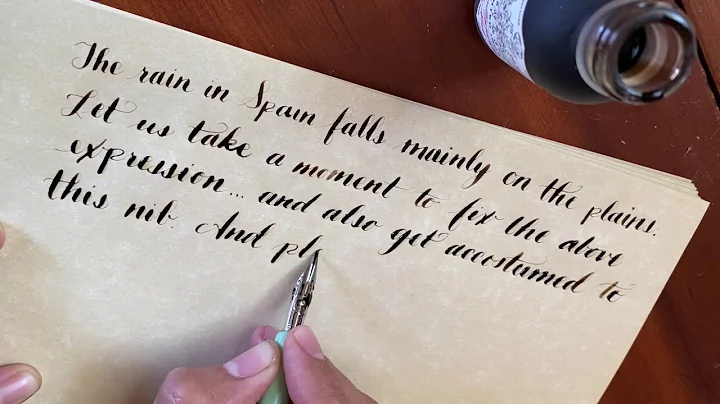 The rain in Spain falls mainly on the plains.
Let us take a moment to fix the above
expression... and also get accostumed to
this nib. And pl